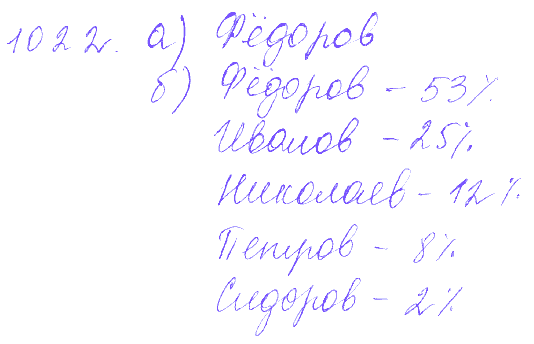 1022. а) Фёдоров
б) Фёдоров - 53%
Иванов - 25%
Николаев - 12%
Петров - 8%
Сидоров - 2%